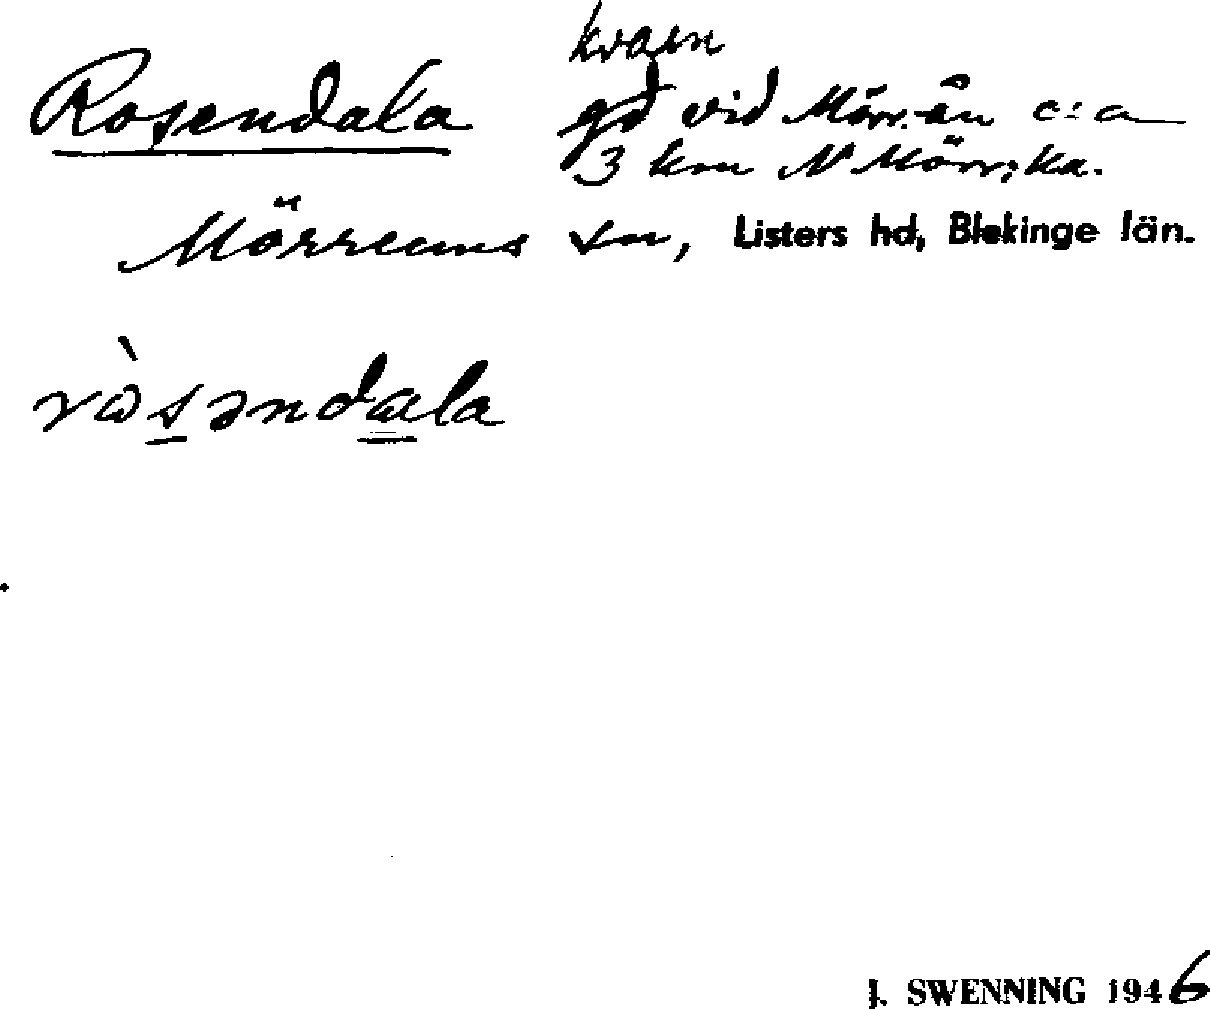 kvarn
Rosendala gd vid Mörr.-ån c:a
3 km N Mörr:s ka.
Mörrums sn, Listers hd, Blekinge län.
ròsəndala
J. SWENNING 1946